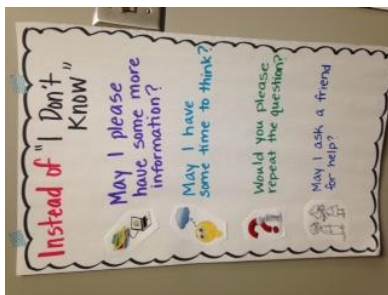 Instead of "I Don't
Know"
May I please
have some more
information?
May I have
some time to think?
Would you please
repeat the question?
May I ask a friend
for help?